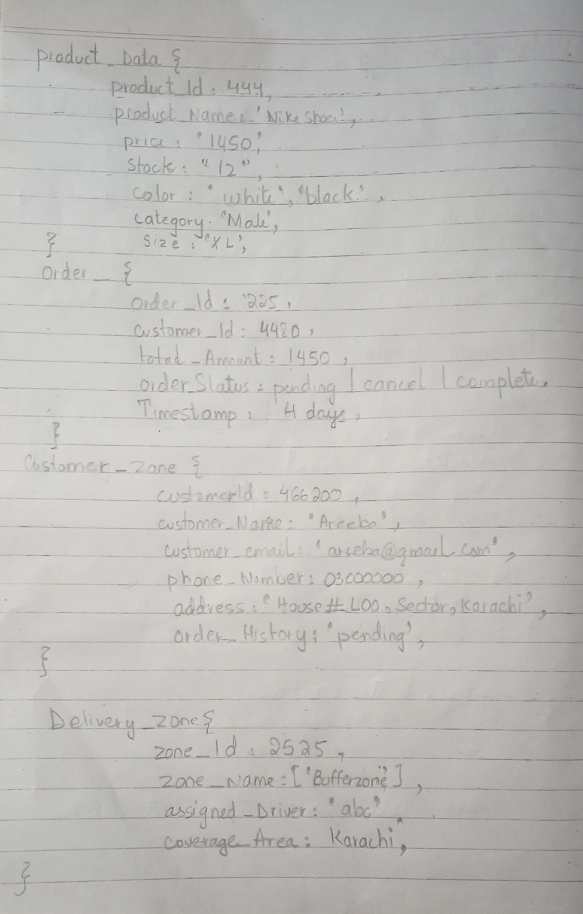 product_Data {
product_Id : 444,
product_Name : 'Nike Shoes',
price : '1450',
Stock : "12",
Color : "white", "black",
Category : 'Male',
Size : 'XL',
}
Order_ {
order_Id : 225,
customer_Id : 4420,
total_Amount : 1450,
order_Status : pending | cancel | complete,
Timestamp : 4 days,
}
Customer_Zone {
customerId : 466200,
customer_Name : "Areeba",
customer_email : "areeba@gmail.com",
phone_Number : 03000000,
address : "House # L00, Sector, Karachi",
order_History : "pending",
}
Delivery_zone {
zone_Id : 2525,
zone_Name : ['Bufferzone'],
assigned_Driver : 'abc',
coverage_Area : Karachi,
}